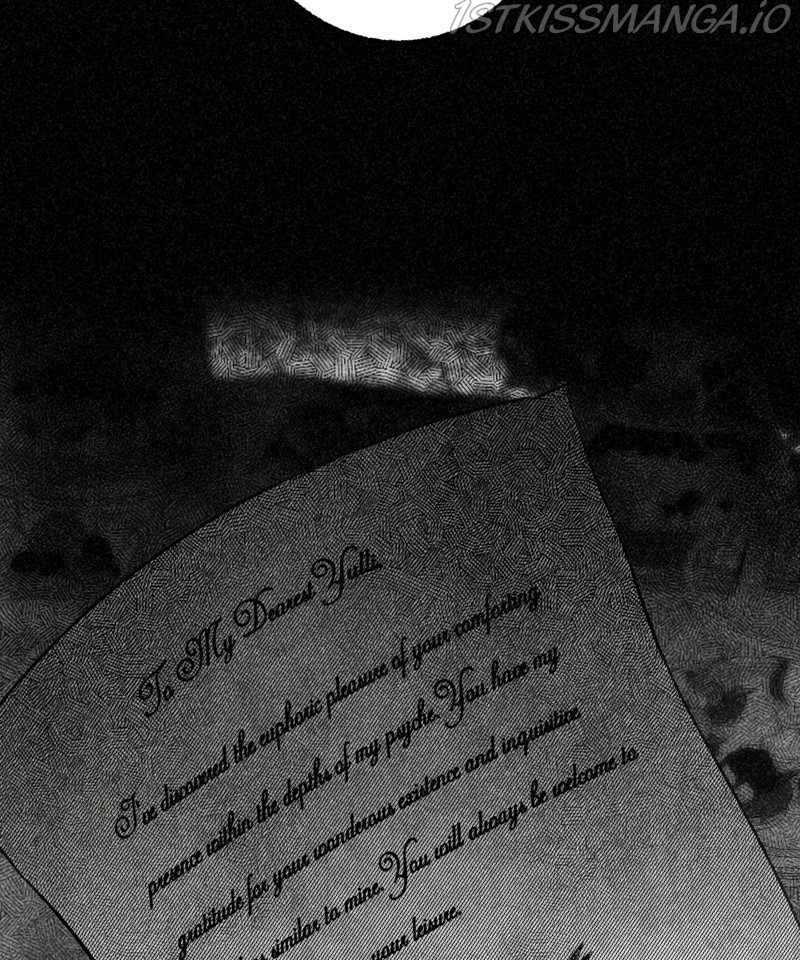 1STKISSMANGA.IO
To My Dearest Yulli.
I've discovered the euphoric pleasure of your comforting
presence within the depths of my psyche. You have my
gratitude for your wonderous existence and inquisitive
similar to mine. You will always be welcome to
your leisure.